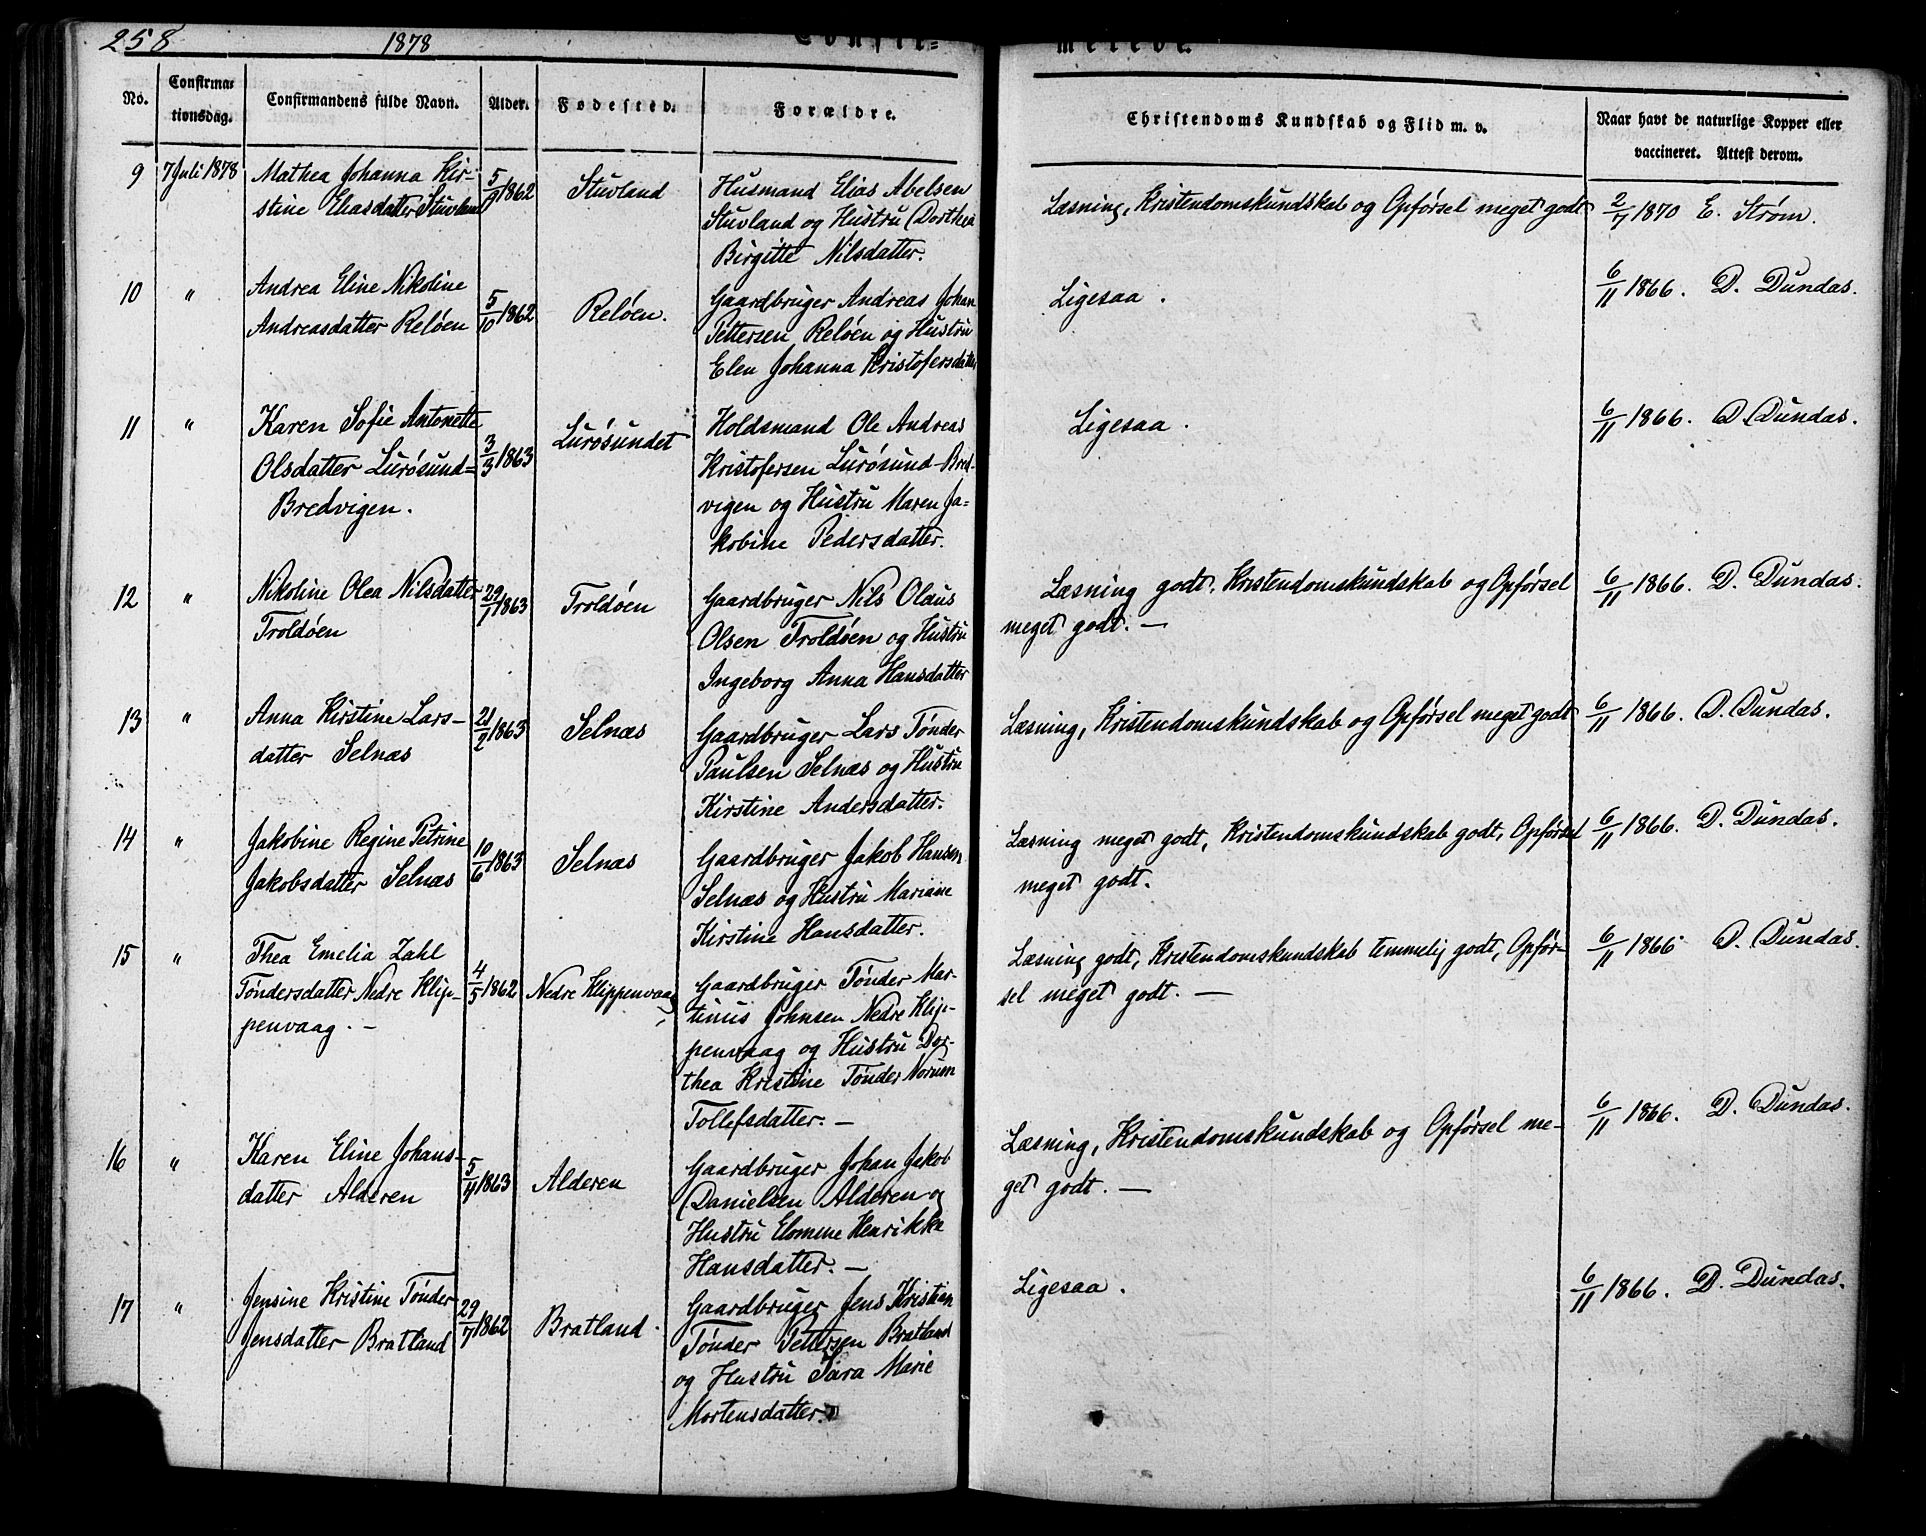 258 1878 Confir= merede.
No. Confirmationsdag. Confirmandens fulde Navn. Alder. Fødested. Forældre. Christendoms Kundskab og Flid m. v. Naar havt de naturlige Kopper eller vaccineret. Attest derom.
9 7 Juli 1878 Mathea Johanna Kir- 5/9 1862 Stuvland Husmand Elias Abelsen Læsning, Kristendomskundskab og Opførsel meget godt 2/7 1870 E. Strøm.
stine Eliasdatter Stuvland Stuvland og Hustru Dorthea
Birgitte Nilsdatter.
10 " Andrea Eline Nikoline 5/10 1862 Reløen. Gaardbruger Andreas Johan Ligesaa. 6/11 1866. D. Dundas.
Andreasdatter Reløen Pettersen Reløen og Hustru
Elen Johanna Kristofersdatter
11 " Karen Sofie Antonette 3/3 1863 Lurøsundet Holdsmand Ole Andreas Ligesaa. 6/11 1866. D. Dundas.
Olsdatter Lurøsund= Kristofersen Lurøsund-Bred-
Bredvigen. vigen og Hustru Maren Ja-
kobine Pedersdatter.
12 " Nikoline Olea Nilsdatter 29/1 1863 Troldøen Gaardbruger Nils Olaus Læsning godt, Kristendomskundskab og Opførsel 6/11 1866. D. Dundas.
Troldøen Olsen Troldøen og Hustru meget godt. —
Ingeborg Anna Hansdatter
13 " Anna Kirstine Lars- 21/2 1863 Selnæs Gaardbruger Lars Tønder Læsning, Kristendomskundskab og Opførsel meget godt 6/11 1866. D. Dundas.
datter Selnæs Paulsen Selnæs og Hustru
Kirstine Andersdatter.
14 " Jakobine Regine Petrine 10/6 1863 Selnæs Gaardbruger Jakob Hansen Læsning meget godt, Kristendomskundskab godt, Opførsel 6/11 1866. D. Dundas.
Jakobsdatter Selnæs Selnæs og Hustru Mariane meget godt.
Kirstine Hansdatter.
15 " Thea Emelia Zahl 4/5 1862 Nedre Klippenvaag Gaardbruger Tønder Mar- Læsning godt, Kristendomskundskab temmelig godt, Opfør- 6/11 1866 D. Dundas.
Tøndersdatter Nedre Klip- tinus Johnsen Nedre Klip- sel meget godt. —
penvaag. — penvaag og Hustru Dor-
thea Kristine Tønder Norum
Tollefsdatter. —
16 " Karen Eline Johans- 5/4 1863 Alderen Gaardbruger Johan Jakob Læsning, Kristendomskundskab og Opførsel me- 6/11 1866. D. Dundas.
datter Alderen Danielsen Alderen og get godt. —
Hustru Elomine Henrikke
Hansdatter. —
17 " Jensine Kristine Tønder 29/7 1862 Bratland. Gaardbruger Jens Kristian Ligesaa. 6/11 1866. D. Dundas.
Jensdatter Bratland Tønder Pettersen Bratland
og Hustru Sara Marie
Mortensdatter.